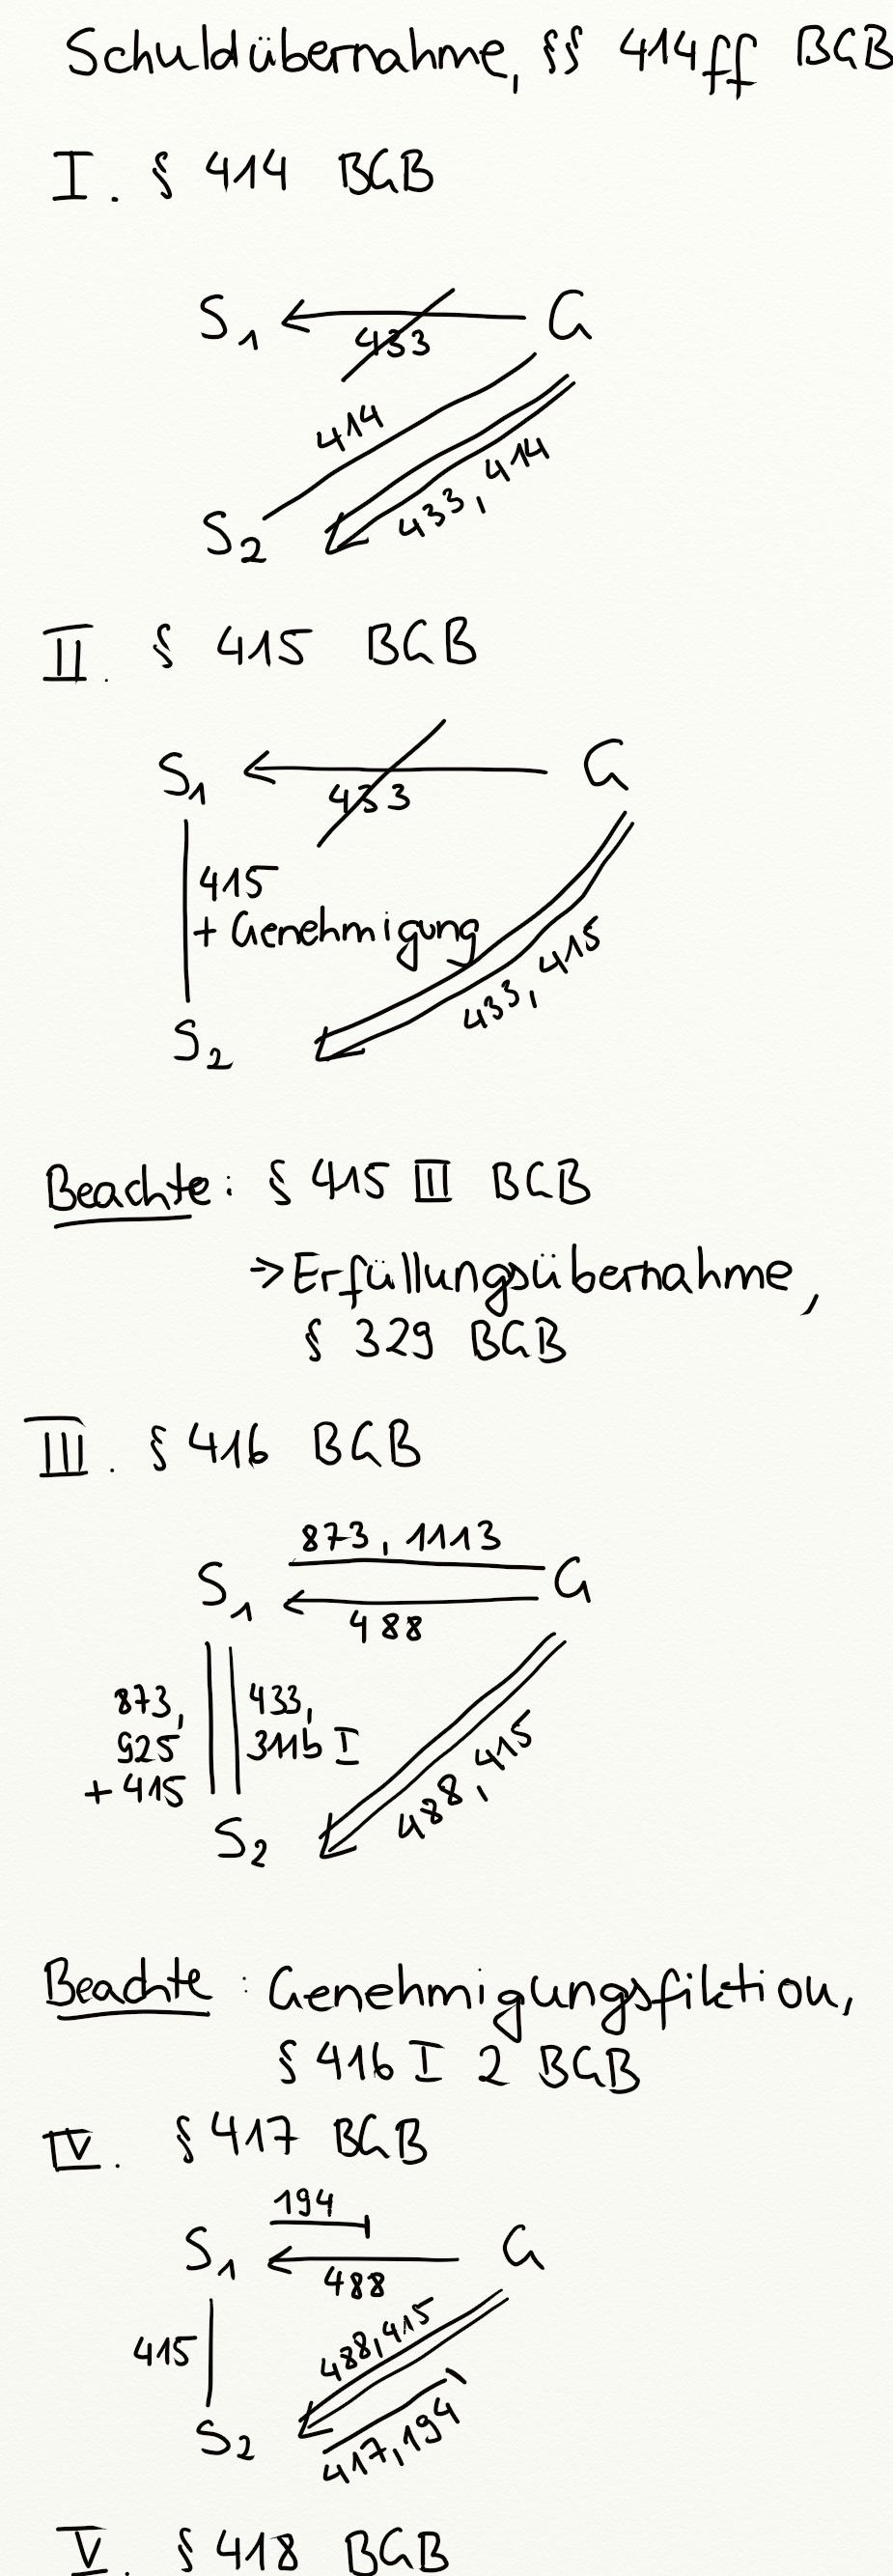 Schuldübernahme, §§ 414ff BGB
I. § 414 BGB
S1 G
433
414
433, 414
S2
II. § 415 BGB
S1 G
433
415
+ Genehmigung
433, 415
S2
Beachte: § 415 III BGB
→ Erfüllungsübernahme,
§ 329 BGB
III. § 416 BGB
873, 1113
S1 G
488
873, 433,
925 311b I
+ 415
488, 415
S2
Beachte: Genehmigungsfiktion,
§ 416 I 2 BGB
IV. § 417 BGB
194
S1 G
488
415
488, 415
S2
417, 194
V. § 418 BGB